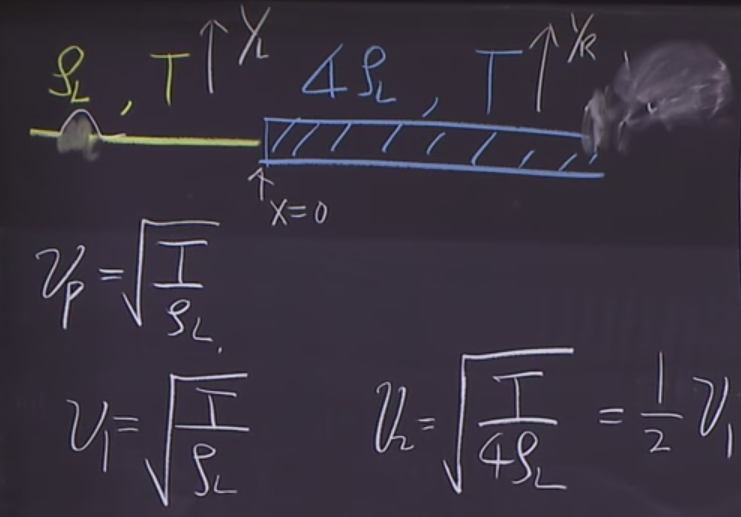 ρ_L , T ↑ Y_L 4ρ_L , T ↑ Y_R
↑ x=0
v_p = √(T/ρ_L)
v_1 = √(T/ρ_L) v_2 = √(T/4ρ_L) = 1/2 v_1